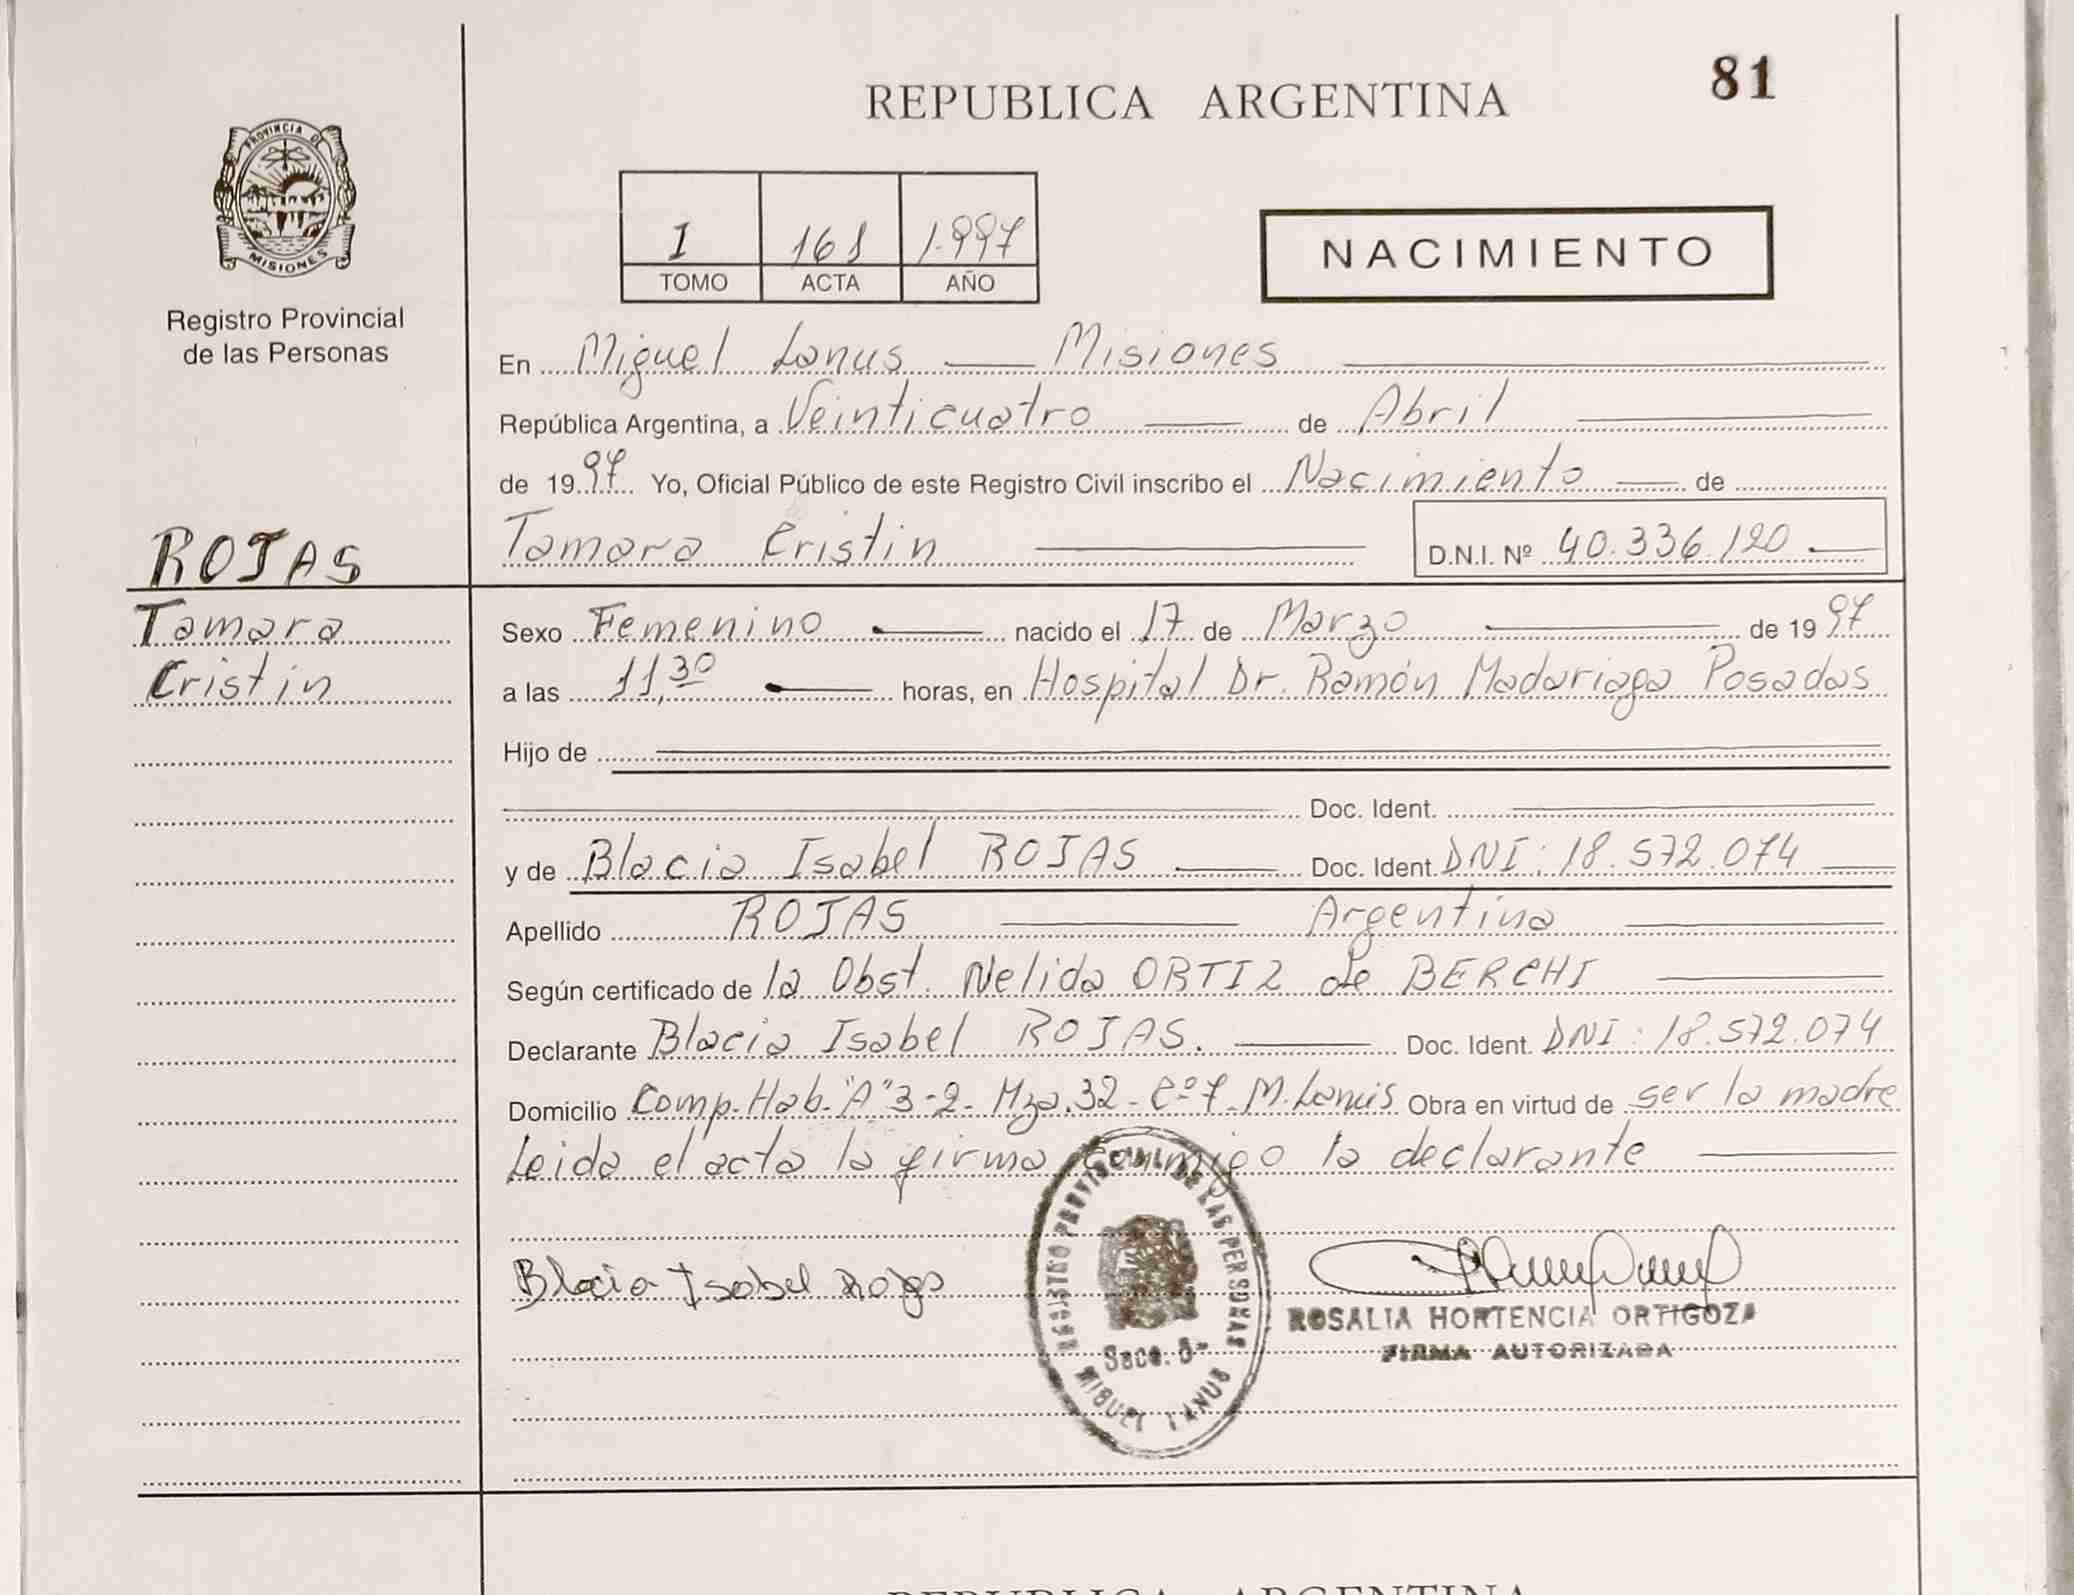 81
REPUBLICA ARGENTINA
PROVINCIA DE
MISIONES
Registro Provincial
de las Personas
I 161 1.997
TOMO ACTA AÑO
NACIMIENTO
En Miguel Lanus Misiones
República Argentina, a Veinticuatro de Abril
de 1997 Yo, Oficial Público de este Registro Civil inscribo el Nacimiento de
Tamara Cristin D.N.I. Nº 40.336.120
ROJAS
Tamara
Cristin
Sexo Femenino nacido el 17 de Marzo de 1997
a las 11,30 horas, en Hospital Dr. Ramón Madariaga Posadas
Hijo de
Doc. Ident.
y de Blacia Isabel ROJAS Doc. Ident. DNI: 18.572.074
Apellido ROJAS Argentina
Según certificado de la Obst. Nelida ORTIZ de BERCHI
Declarante Blacia Isabel ROJAS. Doc. Ident. DNI: 18.572.074
Domicilio Comp. Hab. "A" 3-2- Mza. 32 - Cº 7- M. Lanus Obra en virtud de ser la madre
Leida el acta la firma conmigo la declarante
Blacia Isabel Rojas
REGISTRO PROVINCIAL DE LAS PERSONAS
MIGUEL LANUS
ROSALIA HORTENCIA ORTIGOZA
FIRMA AUTORIZADA
REPUBLICA ARGENTINA